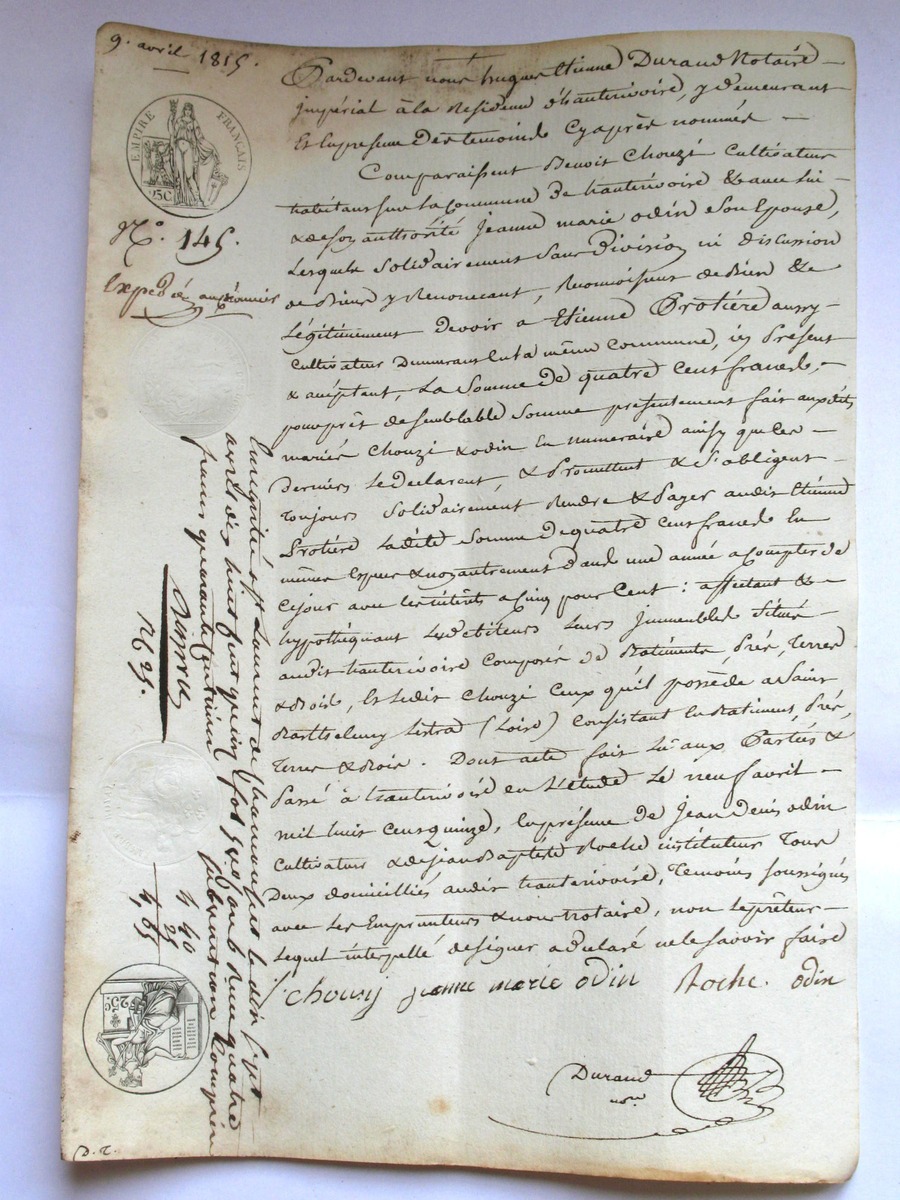 9. avril 1815.
EMPIRE FRANÇAIS
25C
N.o 145.
Expédié au créancier
Pardevant nous hugues Etienne Durand Notaire
impérial à la Residence d'hauterivoire, y demeurant
Et en presence des temoins cy après nommés
Comparaissent Benoit Chouzi Cultivateur
habitant sur la Commune de hauterivoire & avec lui
& de son authorité Jeanne marie odin son Epouse,
Lesquels solidairement sans Division ni discussion
de Biens y Renoncant, Reconnoissent de Bien &
Légitimement devoir a Etienne Protière aussy
Cultivateur Demeurant en la même Commune, icy Présent
& acceptant, La Somme de quatre Cent francs,
pour prêt de semblable somme presentement fait auxdits
mariés Chouzi & odin En numeraire ainsy que les
Derniers le Declarent, & Promettent & S'obligent
Toujours solidairement Rendre & Payer audit Etienne
Protière Ladite somme de quatre cent francs En
mêmes Especes & non autrement dans une année a Compter de
Cejour avec les intérêts a Cinq pour Cent : affectant &
hypothéquant Lesdebiteurs Leurs Immeubles Situés
audit hauterivoire Composés de Batiments Prés, Terres
& Bois, Et Ledit Chouzi Ceux qu'il possède a Saint
Barthelemy Lestra (Loire) Consistant En Batiment, Prés,
Terres & Bois. Dont acte fait Lû aux Parties &
Passé à hauterivoire en L'étude Le neuf avril
mil huit Cent quinze, En présence de Jean Denis odin
Cultivateur & de Jean Baptiste Roche instituteur Tous
Deux domiciliés audit hauterivoire, Temoins soussignés
avec Les Emprunteurs & nous Notaire, non Leprêteur
Lequel interpellé de signer a declaré ne le savoir faire
Chouzy jeanne marie odin Roche. odin
Durand
nre
Enregistré à St Laurent de Chamousset le dix sept
avril dix huit cent quinze fol. Reçu quatre
francs quarante centimes subvention Comprise
N.o 25.
4 40
25
4,65
25c
D. T.